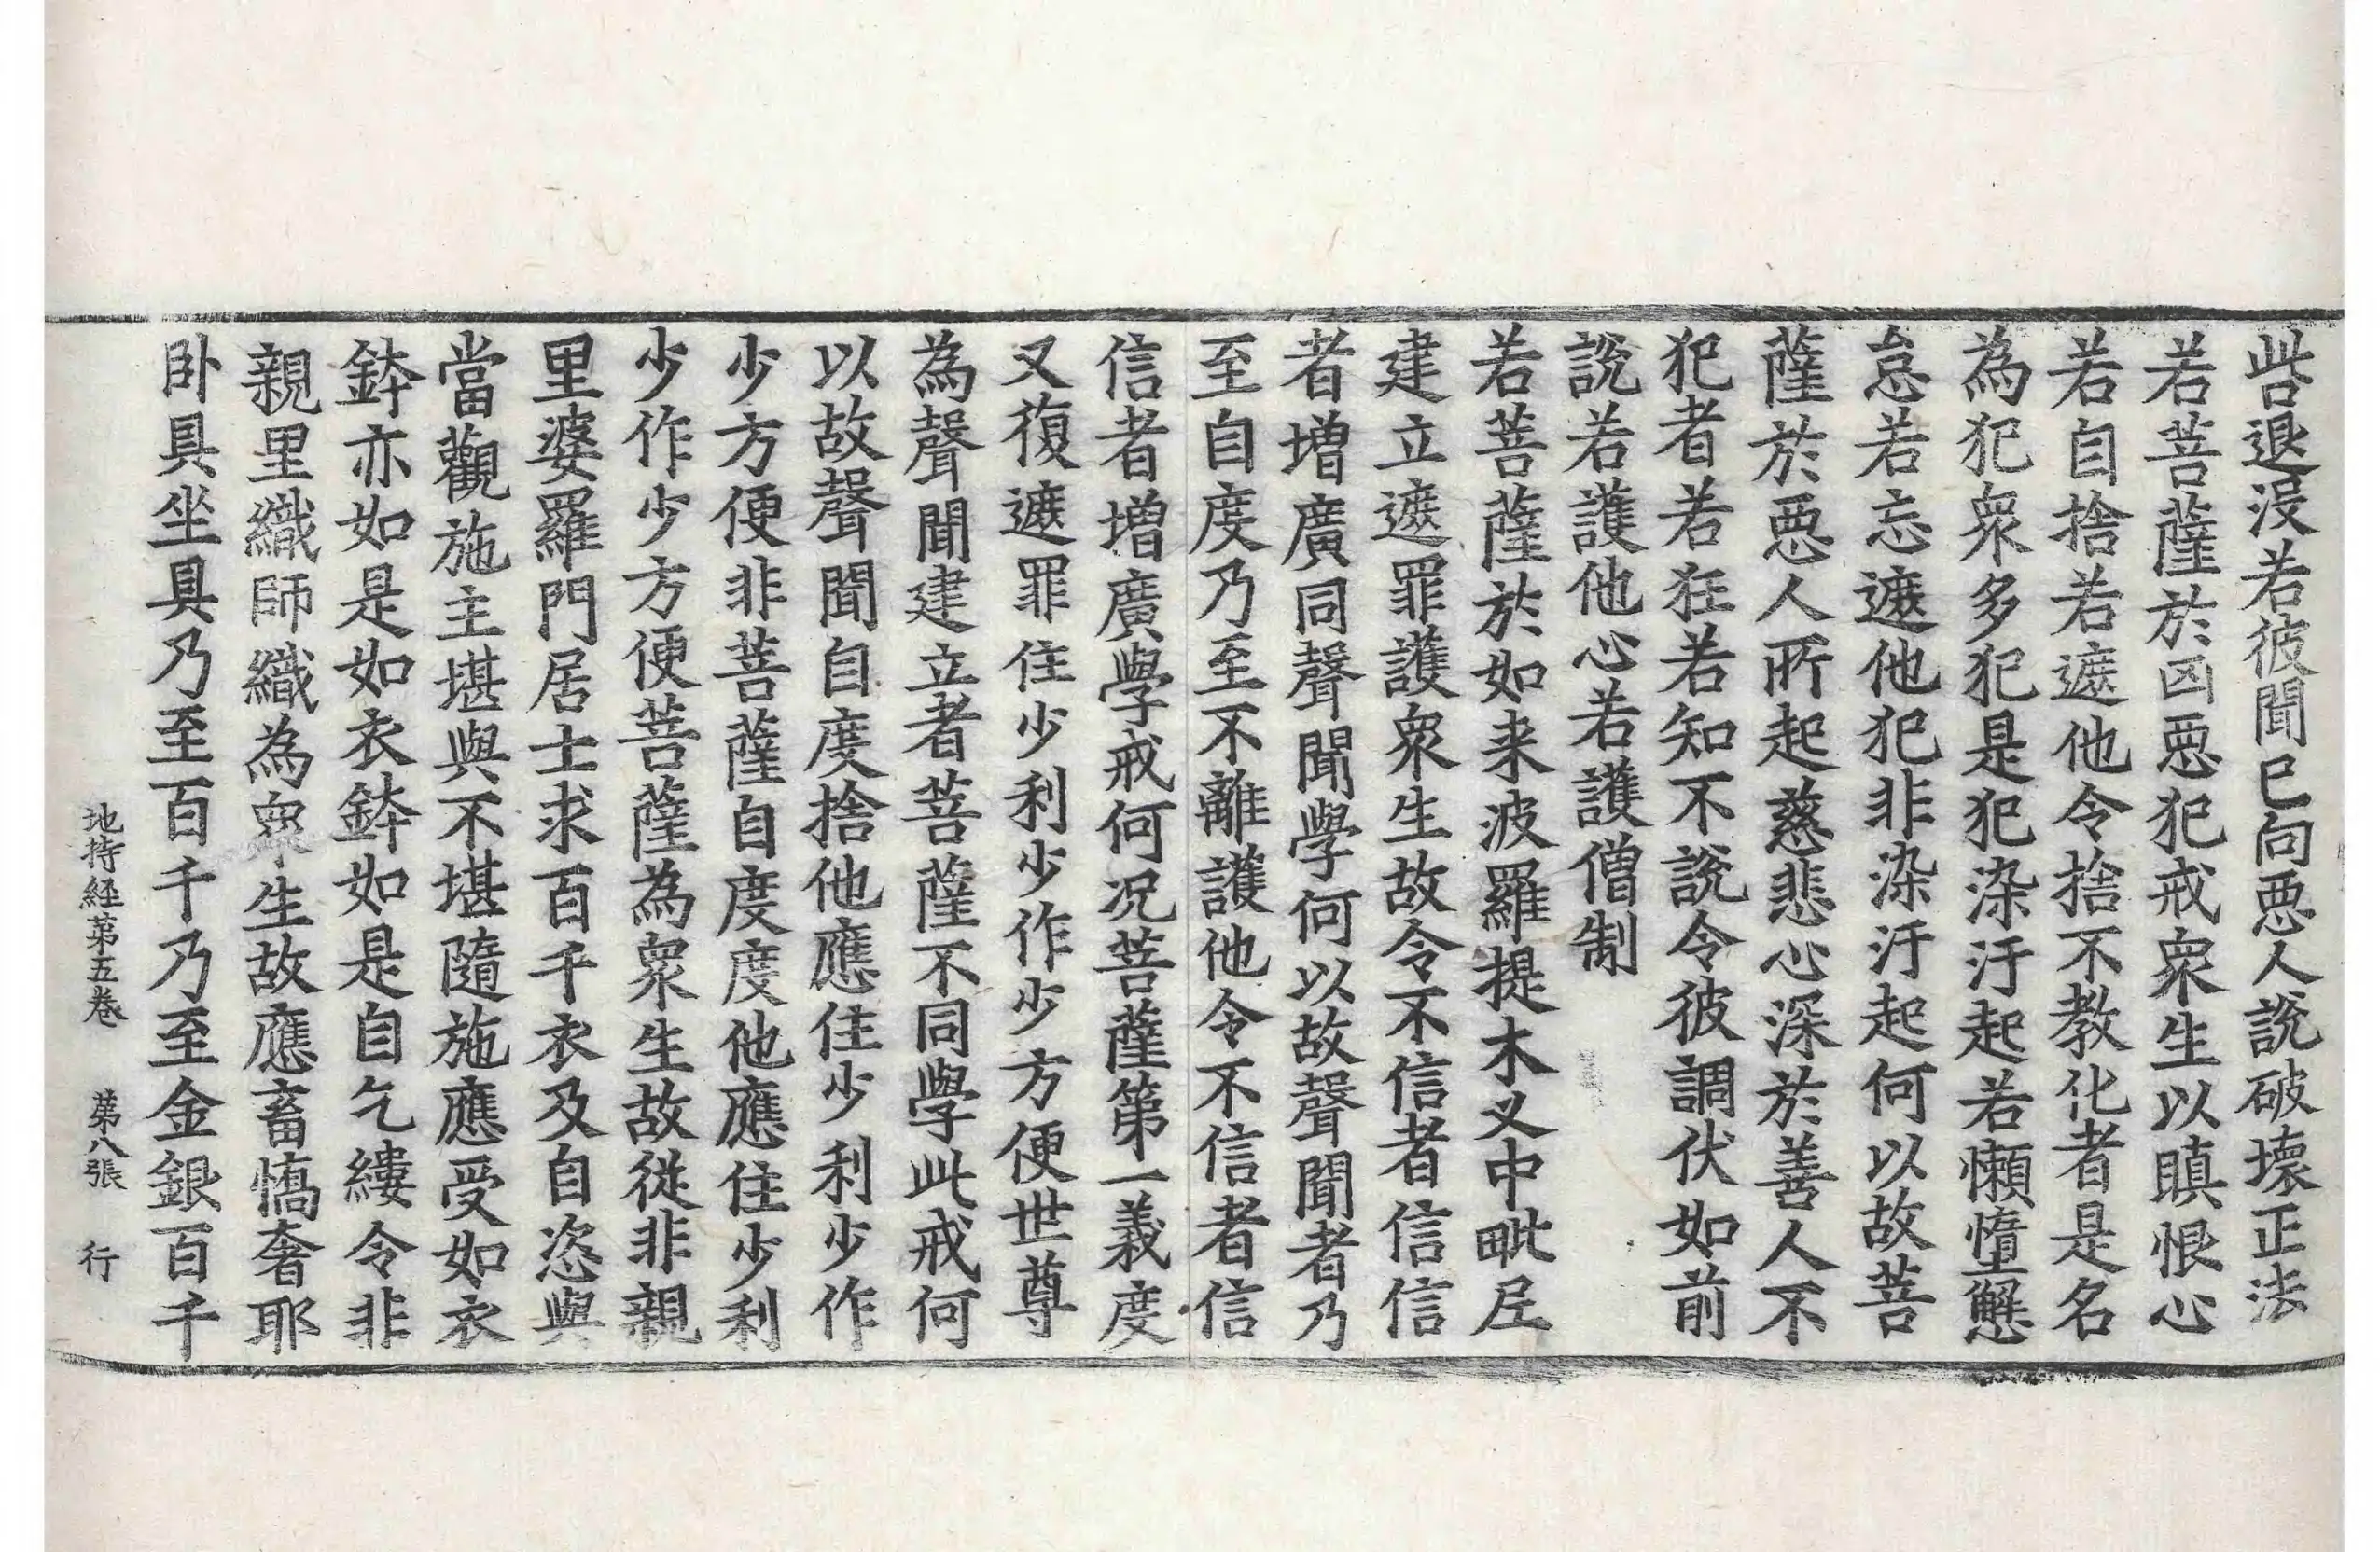 呰退没若彼聞已向悪人說破壞正法
若菩薩於凶悪犯戒衆生以瞋恨心
若自捨若遮他令捨不教化者是名
為犯衆多犯是犯染汙起若懶墮懈
怠若忘遮他犯非染汙起何以故菩
薩於悪人所起慈悲心深於善人不
犯者若狂若知不說令彼調伏如前
說若護他心若護僧制
若菩薩於如来波羅提木叉中毗尼
建立遮罪護衆生故令不信者信信
者增廣同聲聞學何以故聲聞者乃
至自度乃至不離護他令不信者信
信者增廣學戒何况菩薩第一義度
又復遮罪住少利少作少方便世尊
為聲聞建立者菩薩不同學此戒何
以故聲聞自度捨他應住少利少作
少方便非菩薩自度度他應住少利
少作少方便菩薩為衆生故從非親
里婆羅門居士求百千衣及自恣與
當觀施主堪與不堪隨施應受如衣
鉢亦如是如衣鉢如是自乞縷令非
親里織師織為衆生故應畜憍奢耶
卧具坐具乃至百千乃至金銀百千
地持経苐五卷 苐八張 行